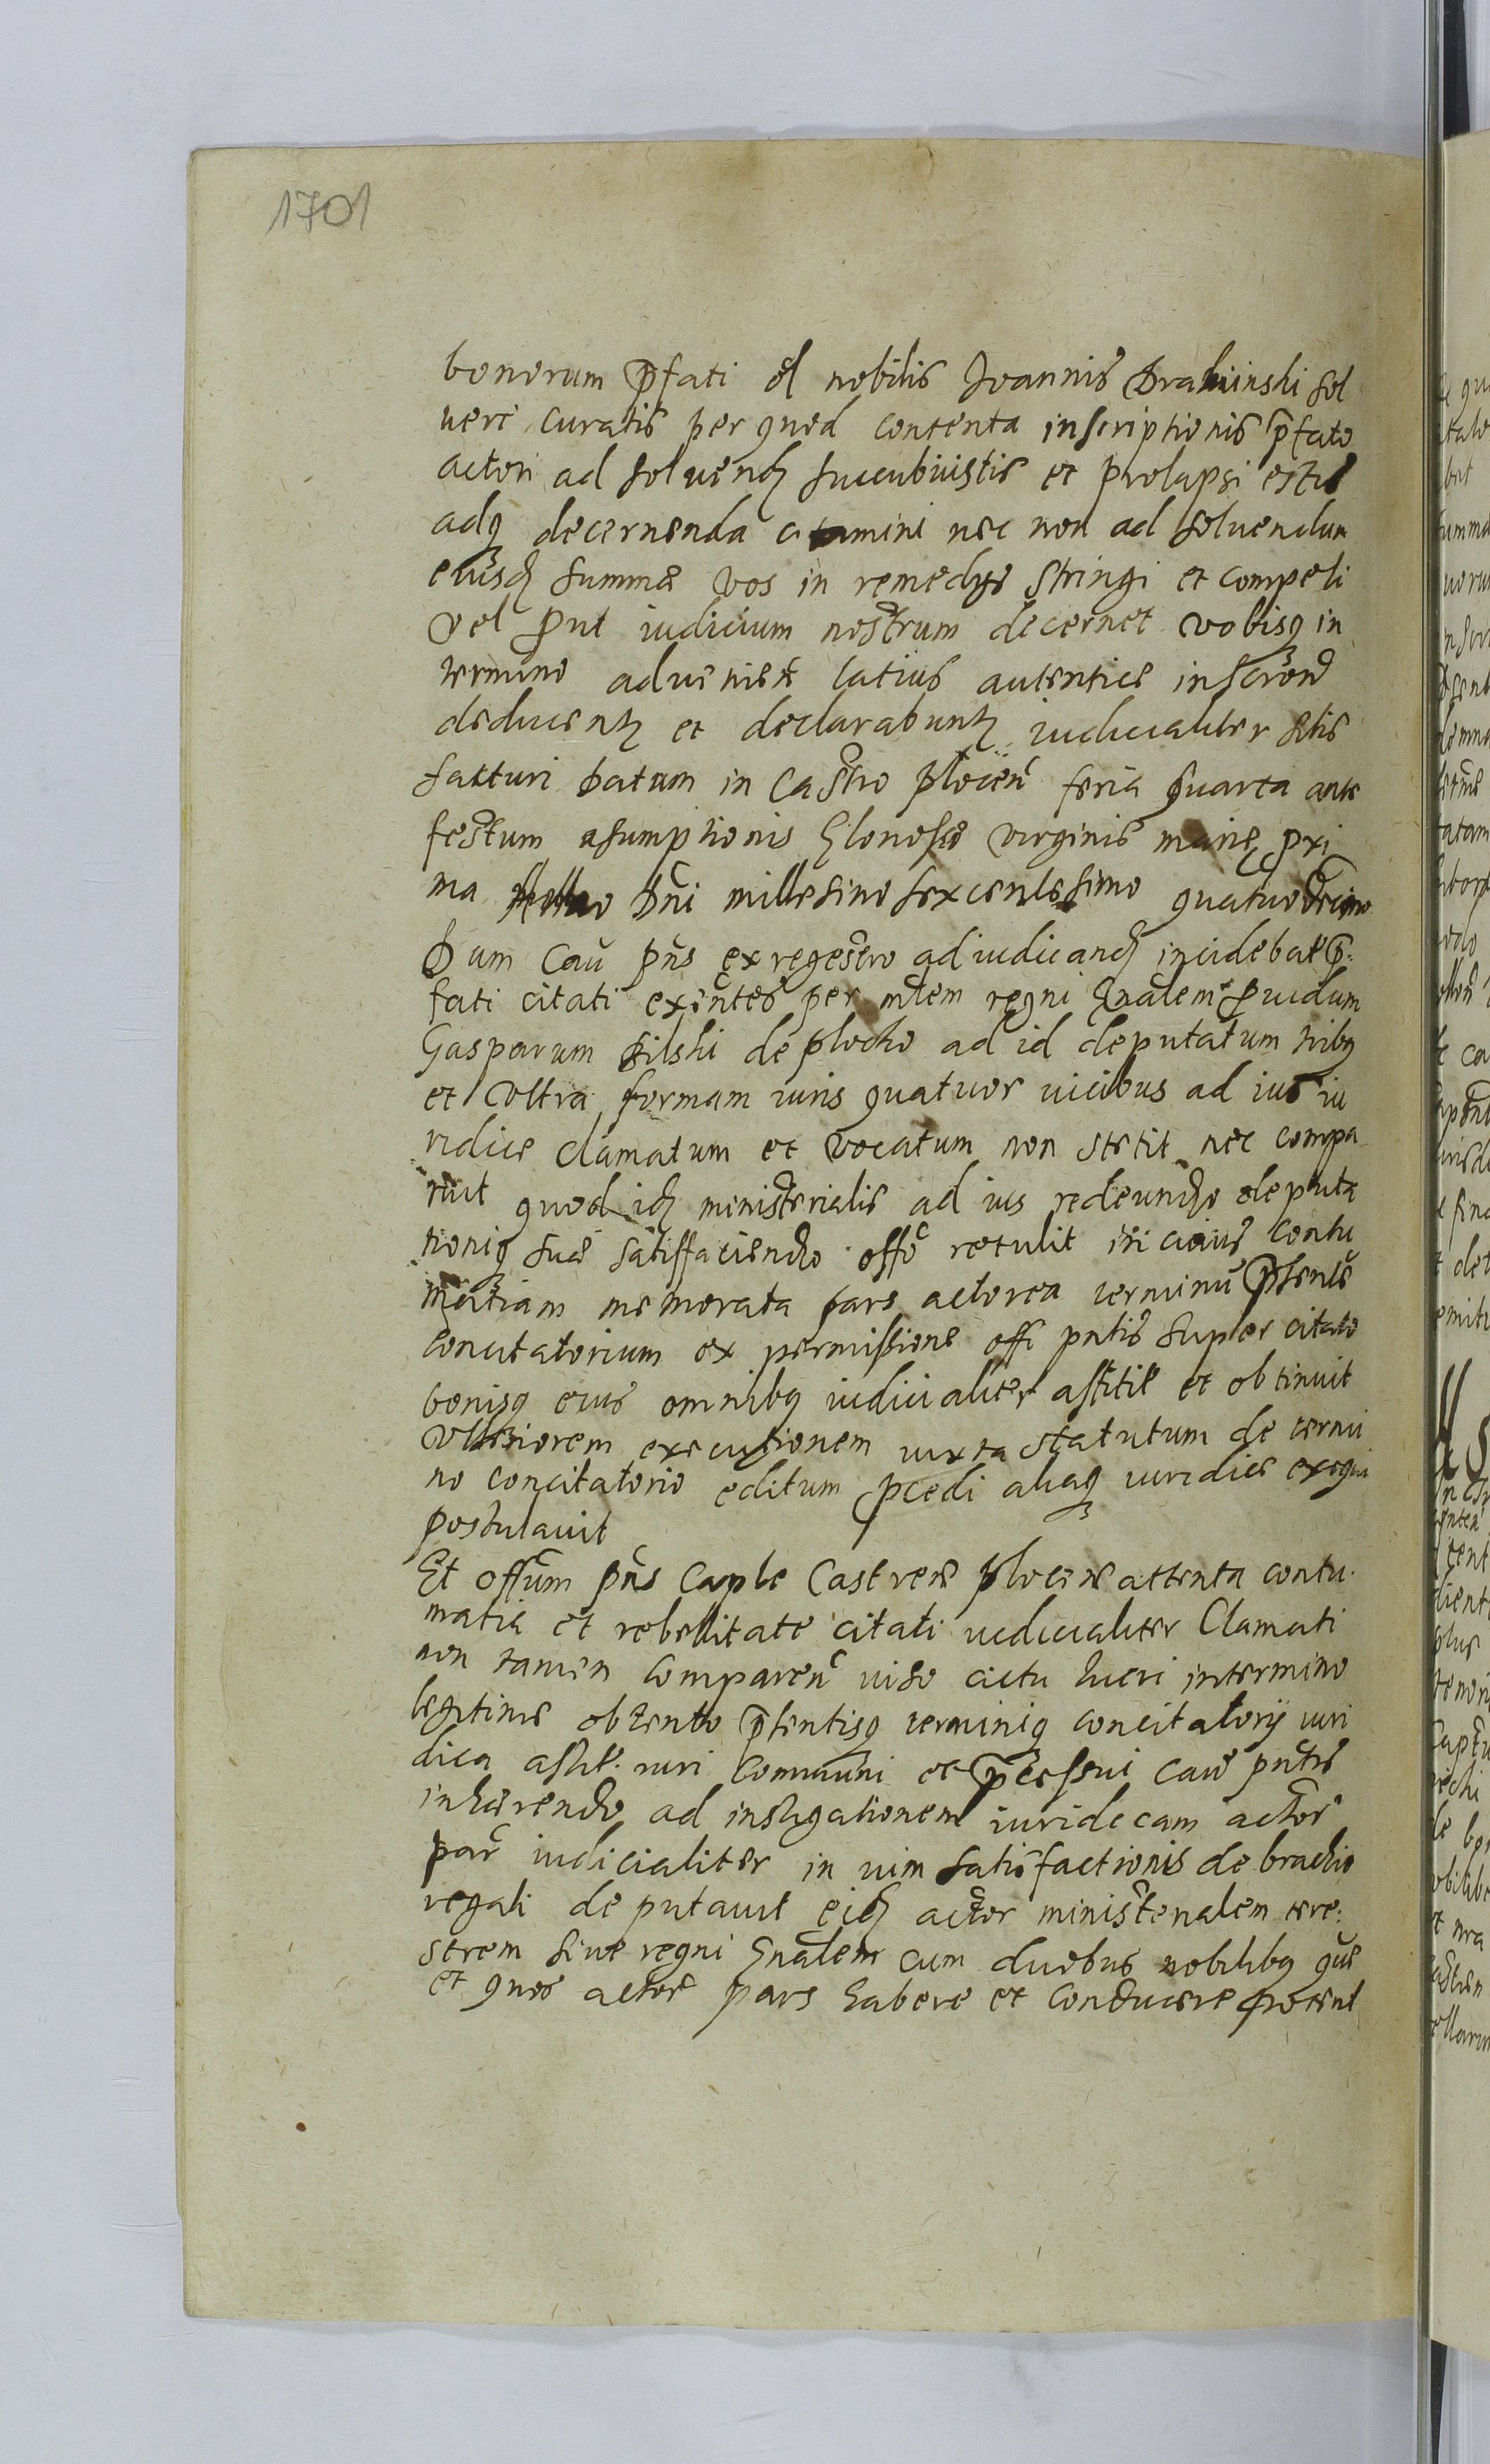 1701
bonorum p̄fati ol nobilis Joannis Drahinski sol
veri curatis per quod contenta inscriptionis p̄fato
actori ad solvend succubuistis et prolapsi estis
adq decernenda citamini nec non ad solvendum
eiusd summæ vos in remedys stringi et compeli
vel put iudicium nostrum decernet vobisq in
termino advenien latius autentice
deducent et declarabunt iudicialiter satis
facturi Datum in Castro plocen feria quarta ante
festum asumptionis Gloriosæ virginis mariæ proxi
ma Dni millesimo sexcentesimo quatuordecimo
Dum Cau pns ex regestro adiudicand incidebat p̄:
fati citati exentes per mlem regni Gnalem puidum
Gasparum Bilski de plocko ad id deputatum tribq
et Ultra formam iuris quatuor vicibus ad ius iu
ridice clamatum et vocatum non stetit nec compa
ruit quod id ministerialis ad ius redeundo deputa
tioniq suæ satisfaciendo offo retulit in cuius contu
matiam memorata pars actorea terminū p̄sente
concitatorium ex permissione offi pntis super citato
bonisq eius omnibq iudicialiter astitit et obtinuit
Ulteriorem executionem iuxta statutum de termi
no concitatorio editum pcedi aliaq iuridice exequi
postulavit
Et offum pns Caple Castrens plocense attenta contu.
matia et rebellitate citati iudicialiter Clamati
non tamen comparen viso actu lucri intermino
legitime obtento p̄sentisq terminiq concitatorij iuri
dica astit. iuri Communi et pcessui cau pntis
inhærendo ad instigationem iuridicam actor
par iudicialiter in vim satisfactionis de brachio
regali deputavit eid actor ministerialem tere:
strem sive regni Gnalem cum duobus nobilibq que
et quos actor pars habere et conducere poterit